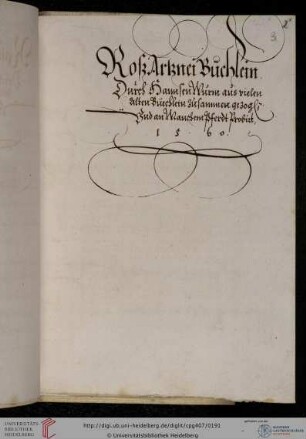 3
Roß Artznei Buchlein
Durch Hannsen Wurm aus vielen
alten Buechlein zusammen gezoge
Und an Manchem Pferdt Probirt.
1 5 6 0
UNIVERSITÄTS-
BIBLIOTHEK
HEIDELBERG
http://digi.ub.uni-heidelberg.de/diglit/cpg407/0191
© Universitätsbibliothek Heidelberg